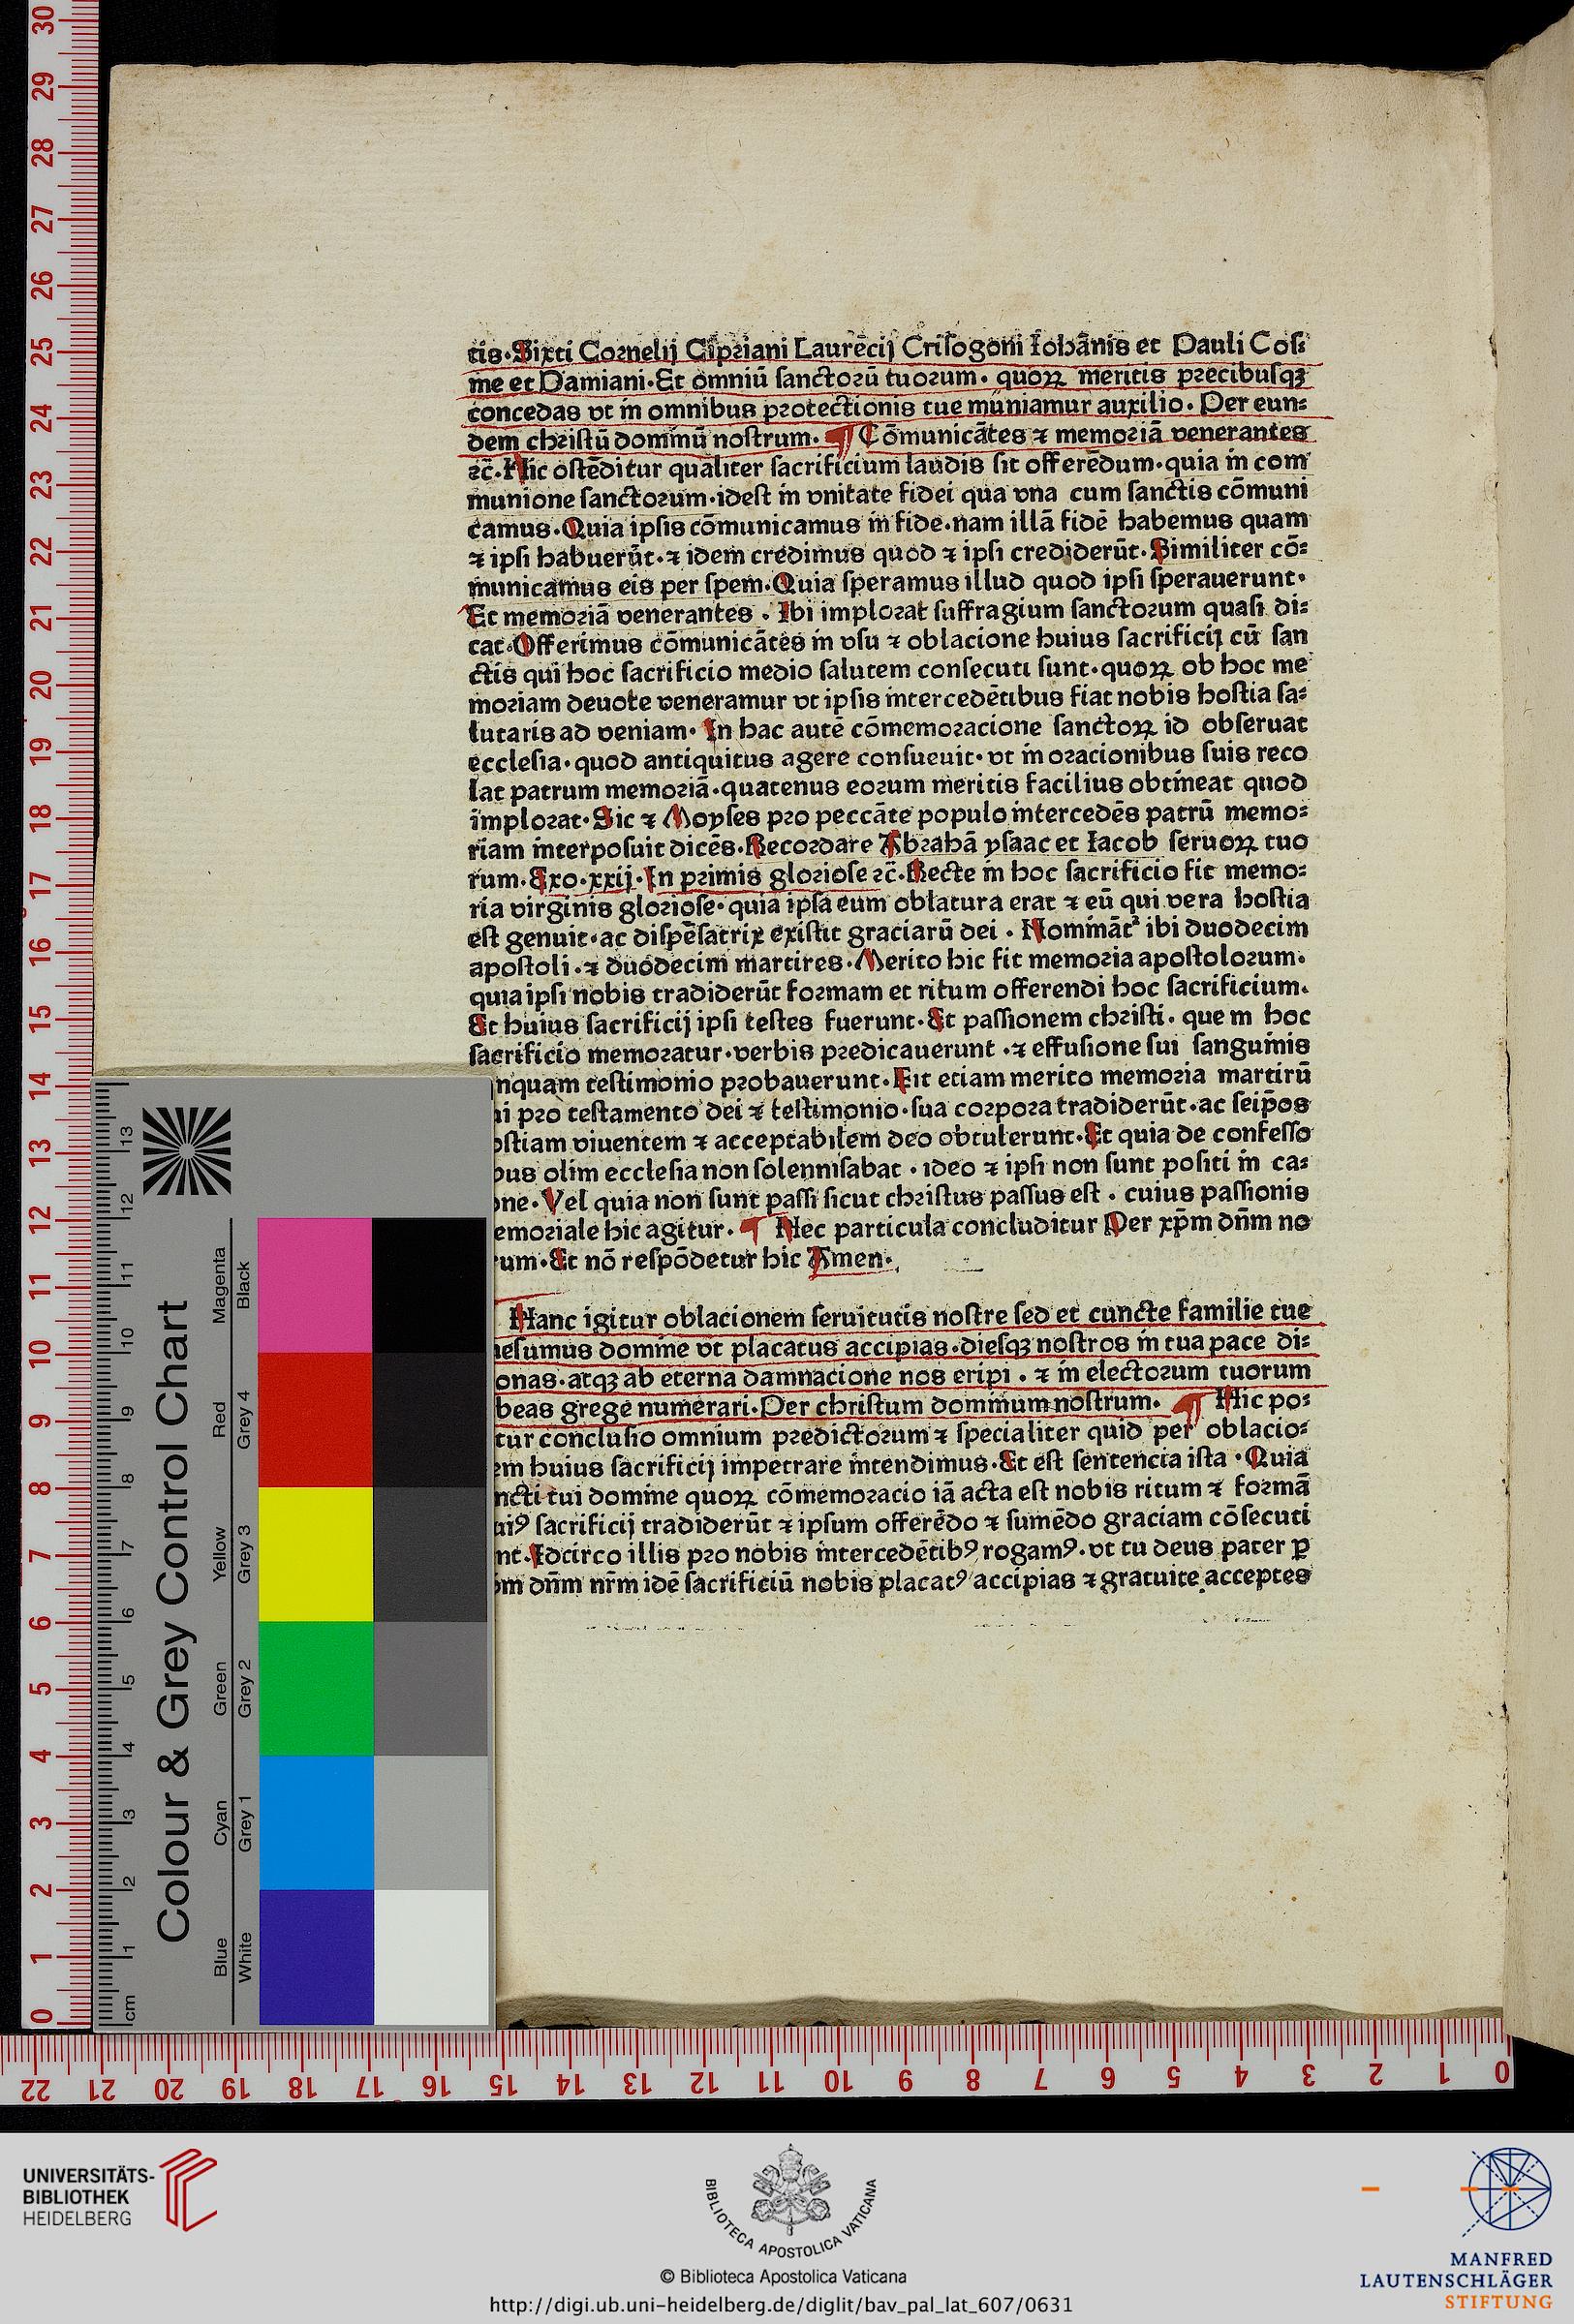 tis·Sixti Cornelij Cipriani Laurēcij Crisogoni Iohānis et Pauli Cos⸗
me et Damiani·Et omniū sanctorū tuorum· quoꝝ meritis precibusqꝫ
concedas vt in omnibus protectionis tue muniamur auxilio· Per eun⸗
dem christū dominū nostrum· ¶ Cōmunicātes ⁊ memoriā venerantes
⁊c̄·Hic ostēditur qualiter sacrificium laudis sit offerēdum·quia in com
munione sanctorum·idest in vnitate fidei qua vna cum sanctis cōmuni
camus·Quia ipsis cōmunicamus in fide·nam illā fidē habemus quam
⁊ ipsi habuerūt·⁊ idem credimus quod ⁊ ipsi crediderūt·Similiter cō⸗
municamus eis per spem·Quia speramus illud quod ipsi sperauerunt·
Et memoriā venerantes · Ibi implorat suffragium sanctorum quasi di⸗
cat·Offerimus cōmunicātes in vsu ⁊ oblacione huius sacrificij cū san
ctis qui hoc sacrificio medio salutem consecuti sunt·quoꝝ ob hoc me
moriam deuote veneramur vt ipsis intercedētibus fiat nobis hostia sa⸗
lutaris ad veniam· In hac autē cōmemoracione sanctoꝝ id obseruat
ecclesia·quod antiquitus agere consueuit·vt in oracionibus suis reco
lat patrum memoriā·quatenus eorum meritis facilius obtineat quod
implorat·Sic ⁊ Moyses pro peccāte populo intercedēs patrū memo⸗
riam interposuit dicēs·Recordare Abrahā ysaac et Iacob seruoꝝ tuo
rum·Exo·xxij·In primis gloriose ⁊c̄·Recte in hoc sacrificio fit memo⸗
ria virginis gloriose·quia ipsa eum oblatura erat ⁊ eū qui vera hostia
est genuit·ac dispēsatrix existit graciarū dei · Nominātʳ ibi duodecim
apostoli·⁊ duodecim martires·Merito hic fit memoria apostolorum·
quia ipsi nobis tradiderūt formam et ritum offerendi hoc sacrificium·
Et huius sacrificij ipsi testes fuerunt·Et passionem christi· que m hoc
sacrificio memoratur·verbis predicauerunt ·⁊ effusione sui sanguinis
nquam testimonio probauerunt·Fit etiam merito memoria martirū
ui pro testamento dei ⁊ testimonio·sua corpora tradiderūt·ac seip̄os
ostiam viuentem ⁊ acceptabilem deo obtulerunt·Et quia de confesso
bus olim ecclesia non solennisabat · ideo ⁊ ipsi non sunt positi in ca⸗
one·Vel quia non sunt passi sicut christus passus est · cuius passionis
emoriale hic agitur· ¶ Hec particula concluditur Per xp̄m dn̄m no
rum·Et nō respōdetur hic Amen·
Hanc igitur oblacionem seruitutis nostre sed et cuncte familie tue
esumus domine vt placatus accipias·diesqꝫ nostros in tua pace di⸗
onas·atqꝫ ab eterna damnacione nos eripi · ⁊ in electorum tuorum
beas grege numerari·Per christum dominum nostrum· ¶ Hic po⸗
tur conclusio omnium predictorum ⁊ specialiter quid per oblacio⸗
em huius sacrificij impetrare intendimus·Et est sentencia ista · Quia
ncti tui domine quoꝝ cōmemoracio iā acta est nobis ritum ⁊ formā
uiꝰ sacrificij tradiderūt ⁊ ipsum offerēdo ⁊ sumēdo graciam cōsecuti
nt·Idcirco illis pro nobis intercedētibꝰ rogamꝰ·vt tu deus pater ꝑ
m dn̄m nr̄m idē sacrificiū nobis placatꝰ accipias ⁊ gratuite acceptes
Colour & Grey Control Chart
Magenta Red Yellow Green Cyan Blue
Black Grey 4 Grey 3 Grey 2 Grey 1 White
cm 1 2 3 4 5 6 7 8 9 10 11 12 13
30 29 28 27 26 25 24 23 22 21 20 19 18 17 16 15 14 13 12 11 10 9 8 7 6 5 4 3 2 1 0
22 21 20 19 18 17 16 15 14 13 12 11 10 9 8 7 6 5 4 3 2 1 0
UNIVERSITÄTS-
BIBLIOTHEK
HEIDELBERG
BIBLIOTECA APOSTOLICA VATICANA
© Biblioteca Apostolica Vaticana
http://digi.ub.uni-heidelberg.de/diglit/bav_pal_lat_607/0631
MANFRED
LAUTENSCHLÄGER
STIFTUNG